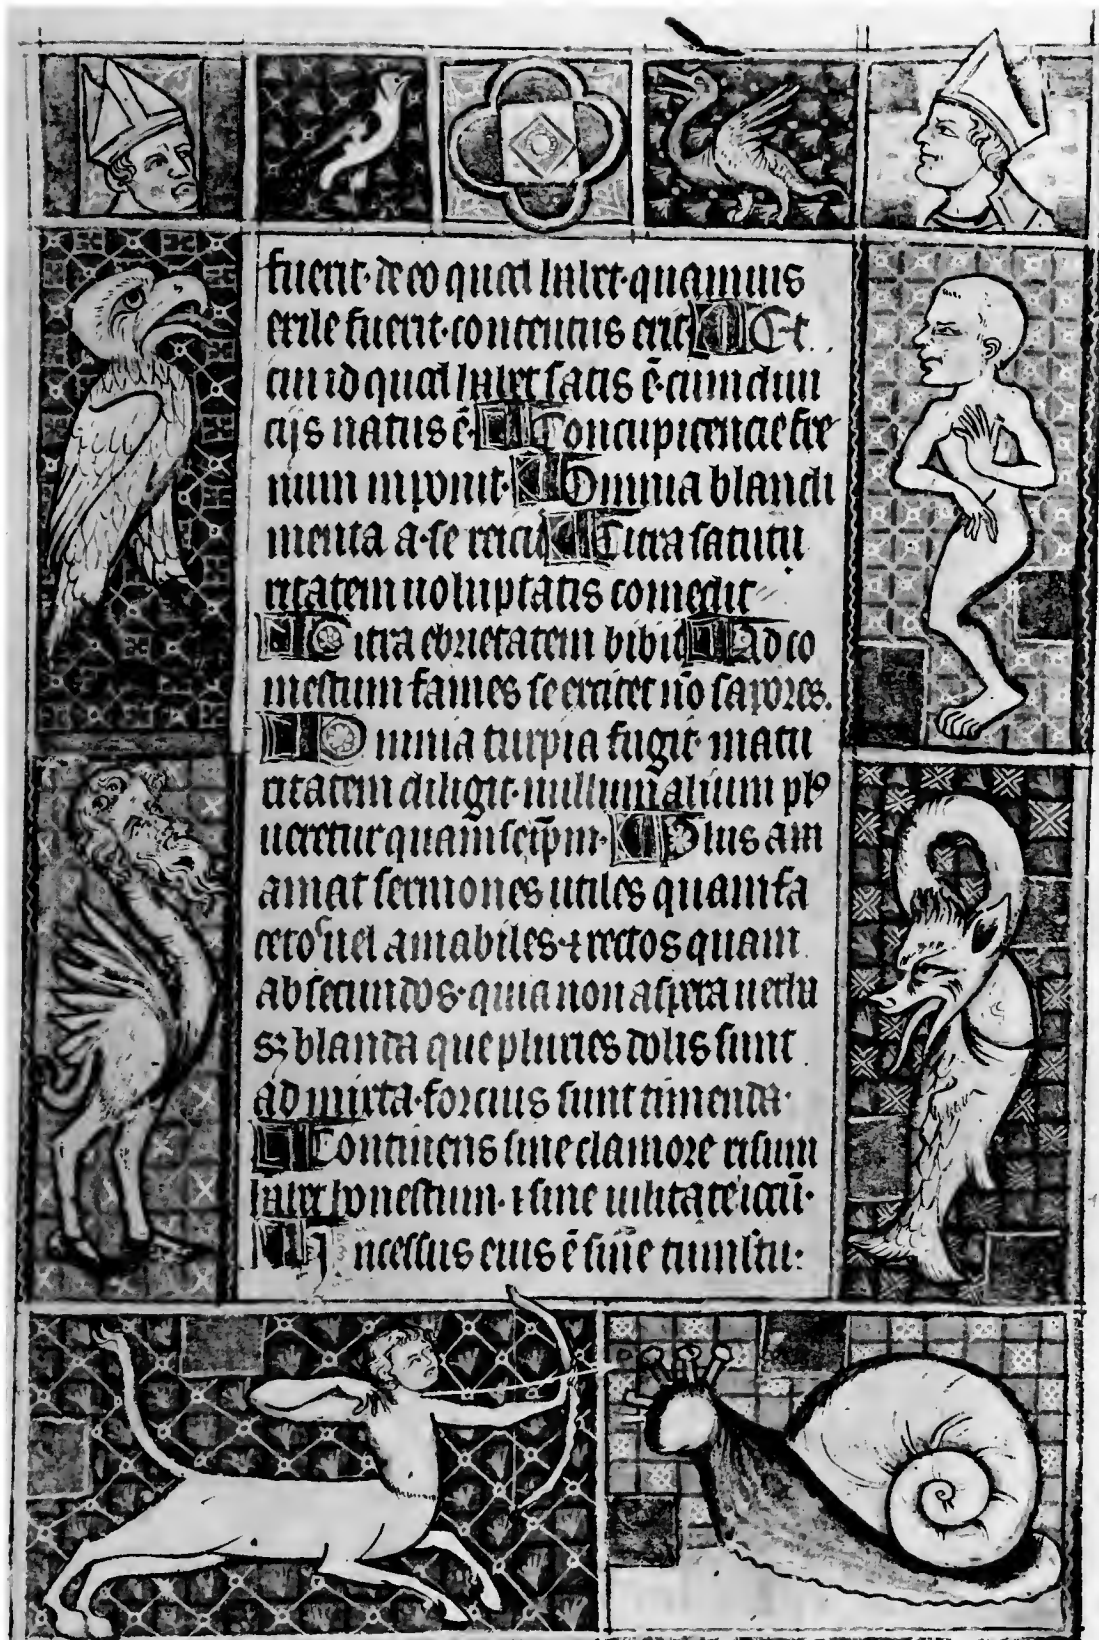 fuerit· de eo quod habet· quamuis
exile fuerit· contentus erit Et
cui id quod habet satis ē· cum diui
cijs natus ē· Concupicencie fre
num inponit· Omnia blandi
menta a·se reicit Citra satutu
ritatem uoluptatis comedit
Citra ebrietatem bibit Ad co
mestium fames se excitet nō sapores.
Omnia turpia fugit· matu
ritatem diligit· nullum alium pl⁹
ueretur quam seip̄m· Plus am
amat sermones utiles quam fa
cetos uel amabiles· ⁊ rectos quam
absecundos· quia non aspera uerba
sꝫ blanda que pluries dolis sunt
admixta· forcius sunt timenda·
Continens sine clamore risum
habet honestum· ⁊ sine uilitate iocū·
Incessus eius ē sine tumultu: